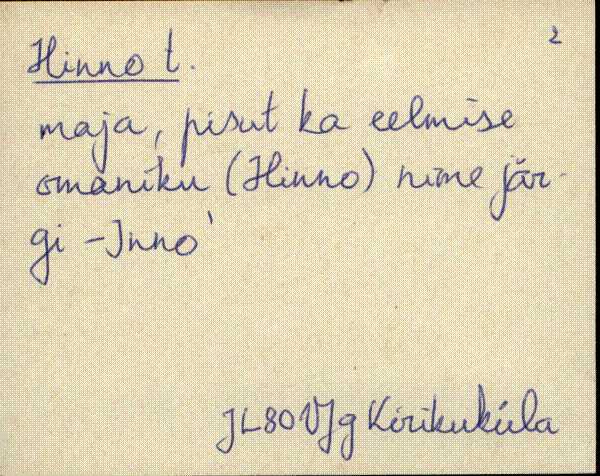 2
Hinno t.
maja, pisut ka eelmise
omaniku (Hinno) nime jär-
gi - Inno'
JL80 VJg Kirikuküla